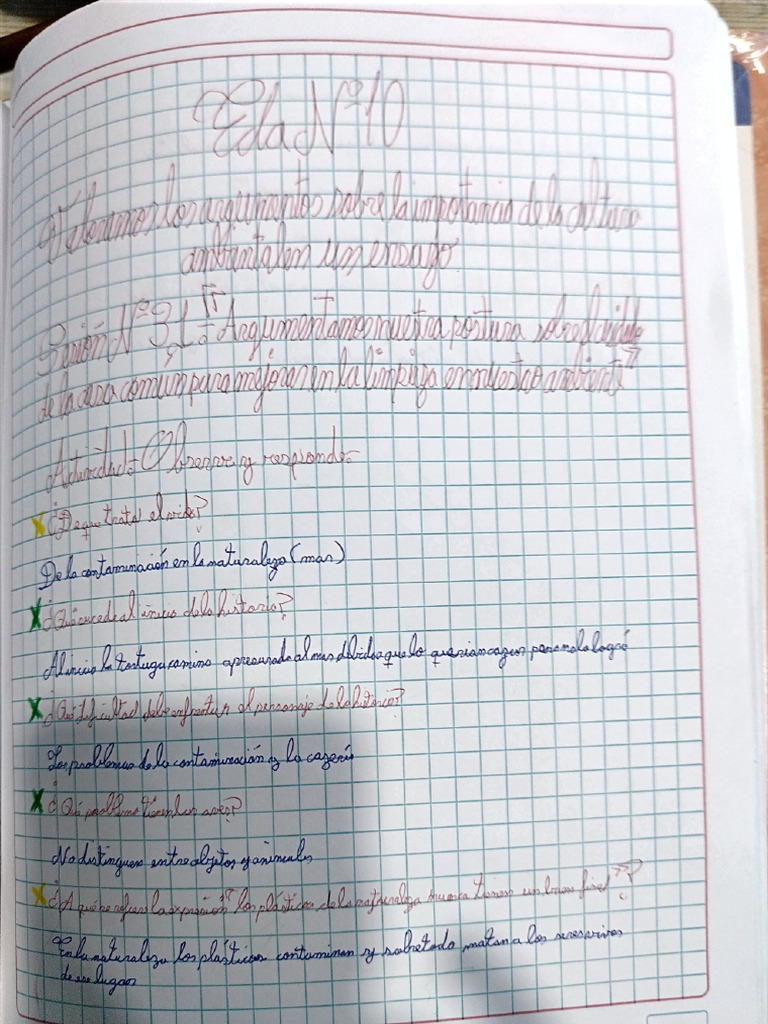 Eda N°10
Valoramos los argumentos sobre la importancia de la cultura
ambiental en un ensayo.
Sesión N°31: "Argumentamos nuestra postura sobre el
de la casa común para mejorar en la limpieza en nuestro ambiente"
Actividad: Observa y responde:
¿De que trata el video?
De la contaminación en la naturaleza (mar)
¿Qué sucede al inicio de la historia?
Al inicio la tortuga camino apresurada al mar debido a que lo querian cazar pero no lo logró
¿Qué dificultad debe enfrentar el personaje de la historia?
Los problemas de la contaminación y la cazería
¿Qué problema tienen las aves?
No distinguen entre objetos y animales
¿A qué se refiere la expresión "los plásticos de la naturaleza nunca tienen un buen final"?
En la naturaleza los plásticos contaminan y sobretodo matan a los seres vivos
de ese lugar